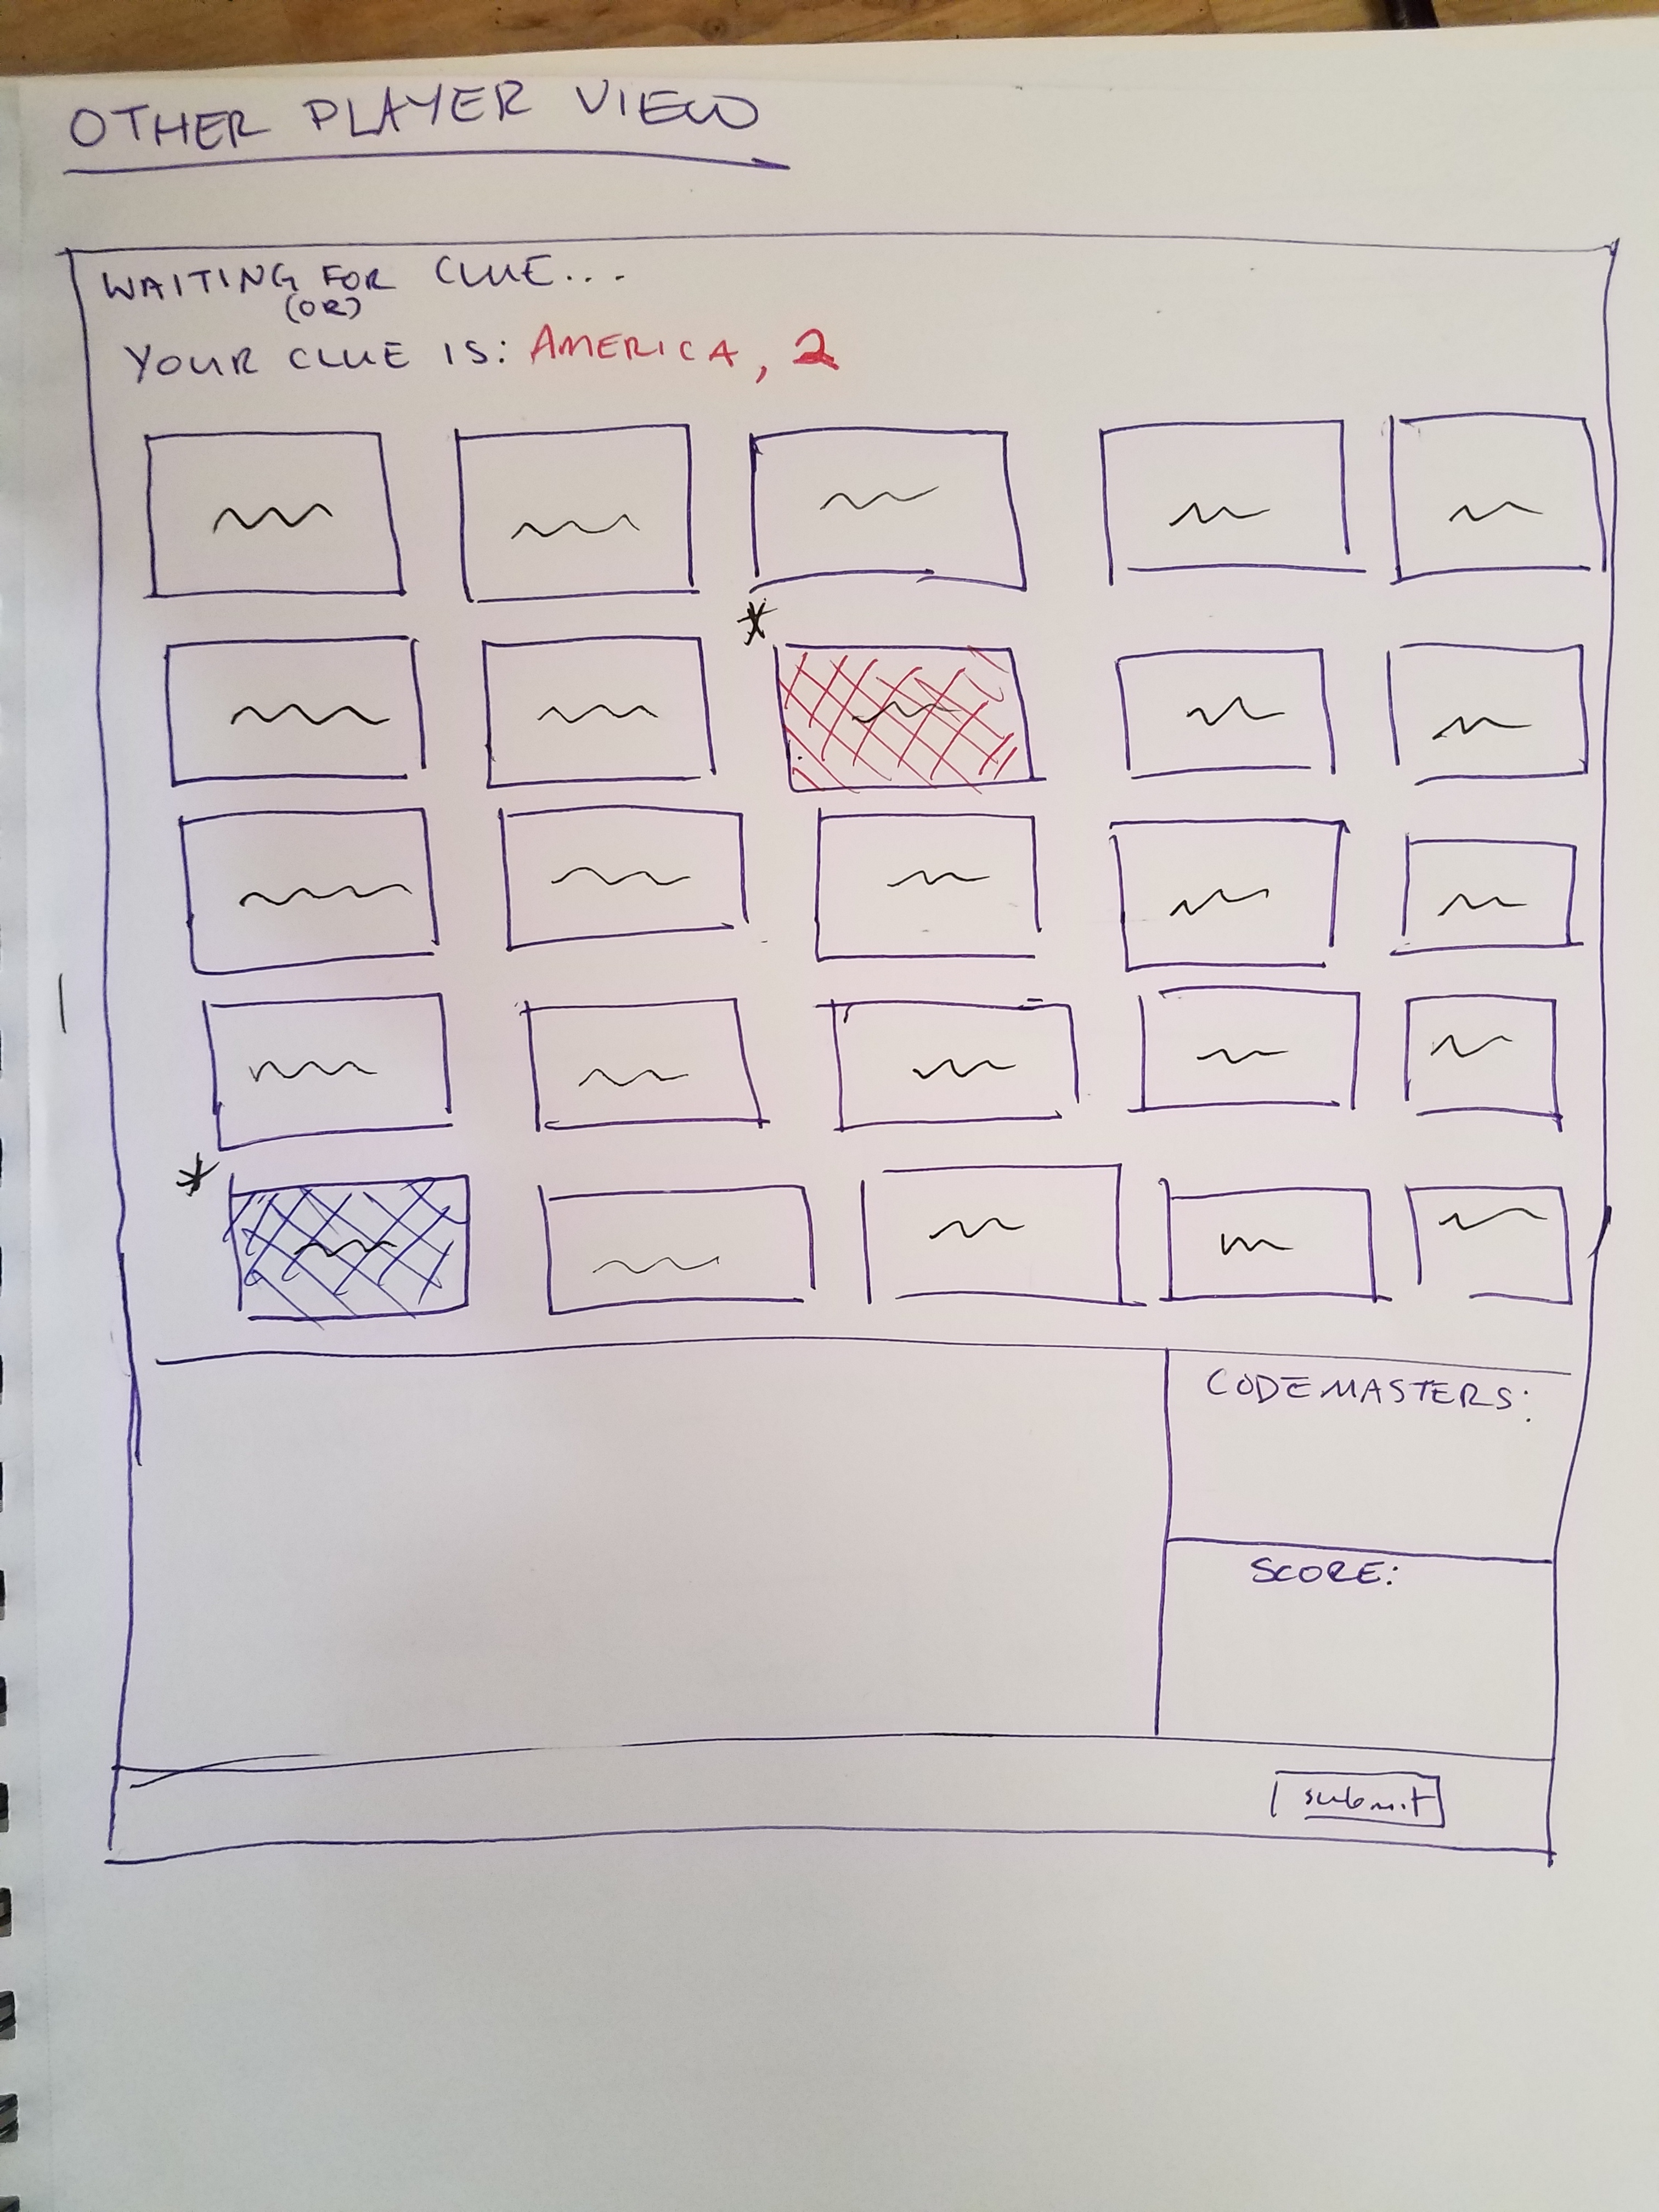 OTHER PLAYER VIEW
WAITING FOR CLUE...
(OR)
YOUR CLUE IS: AMERICA, 2
*
*
CODEMASTERS:
SCORE:
submit